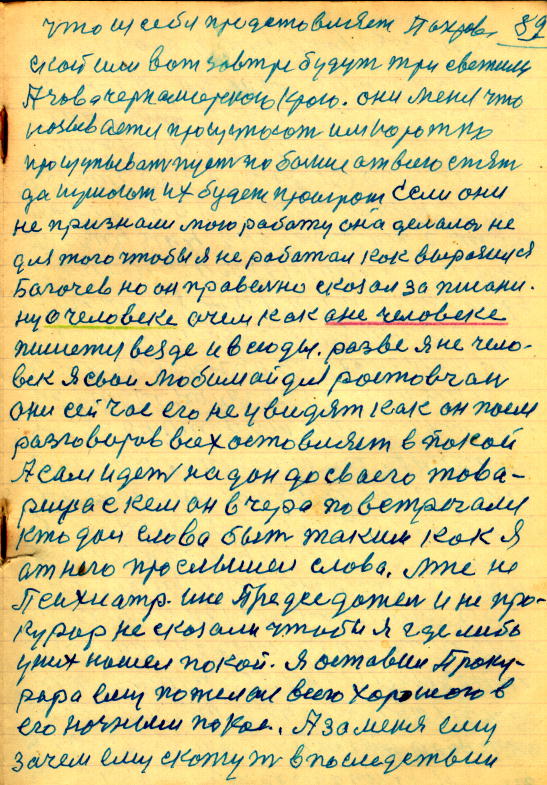 что из себя продстовляет Покров. 89
ской или вот завтре будут три светили
Азовочерноморского Крою. они меня что
прощупывать пусть по больше от всего стоят
да пущают их будет проигрош Если они
не признали мою работу она делался не
для того чтобы я не работал как выразился
Богочев но он правельно сказал за писани.
ну о человеке очем как а не человеке
пишется везде и всюды. разве я не чело-
век я свои любимой для ростовчан
они сейчас его не увидят как он посля
разговоров всех оставляет в покой
А сам идет на дон до своего това-
рища с кем он вчера повстречали
кто дал слова быть таким как я
от него прослышел слова. мне не
Психиатр. ине Председател и не про-
курор не сказали чтобы я где либо
у них нашел покой. я оставил Проку-
рора ему пожелал всего хорошого в
его ночными покое. А за меня ему
зачем ему скажут в последствии